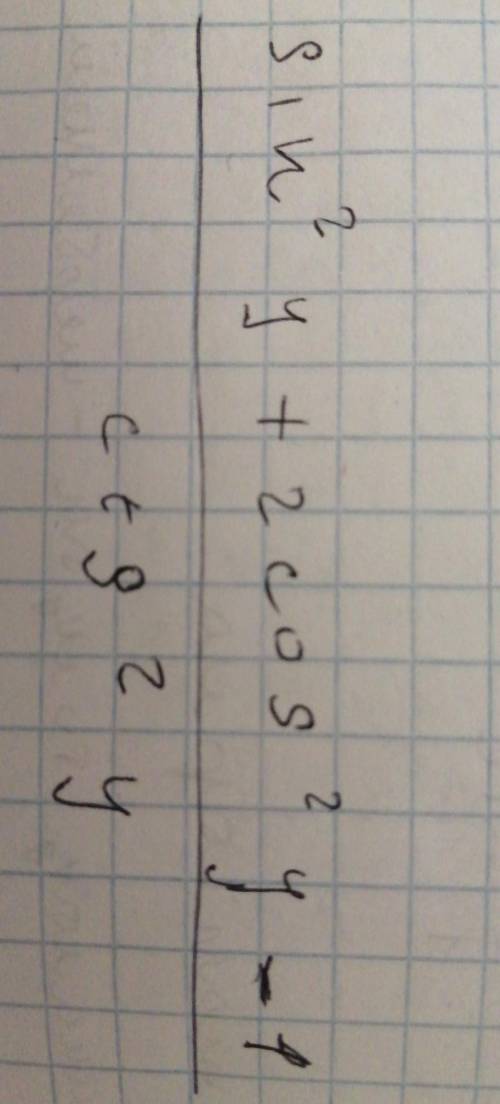 sin² y + 2 cos² y - 1
ctg² y